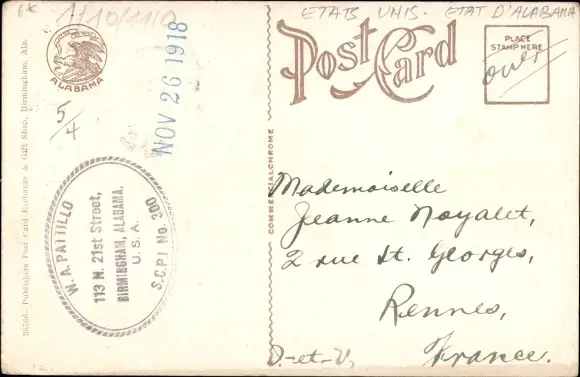 6€ 1/10/11/0 ETAB UNIS - ETAT D'ALABAMA
Post Card
PLACE
STAMP HERE
over
ALABAMA
5/4
NOV 26 1918
W. A. PATTILLO
113 N. 21st Street,
BIRMINGHAM, ALABAMA.
U. S. A.
S.C.P.I No. 300
36506—Publishers Post Card Exchange & Gift Shop, Birmingham, Ala.
COMMERCIALCHROME
Mademoiselle
Jeanne Noyalet,
2 rue St. Georges,
Rennes,
I.-et-V. France.